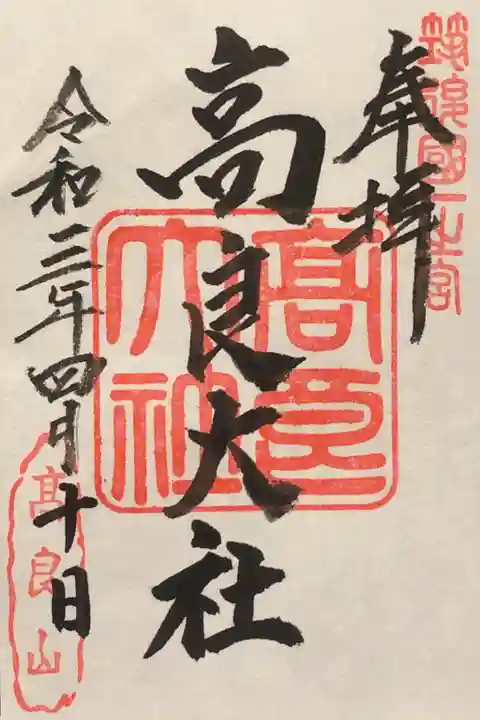 筑後國一之宮
奉拝
高良大社
髙良大社
令和三年四月十日
髙良山